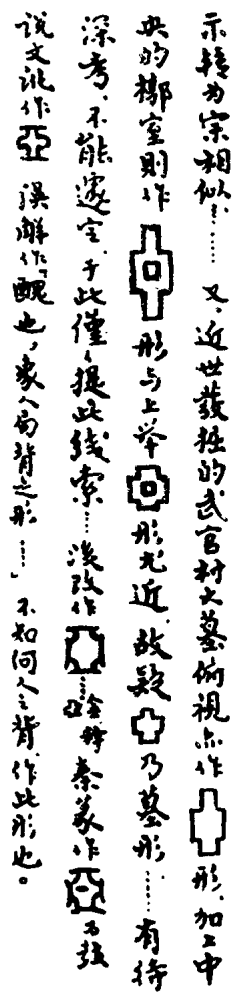 示轉为宗相似：……又，近世發掘的武官村大墓俯視亦作形，加上中
央的槨室則作形与上举形尤近，故疑乃墓形……有待
深考，不能遽定，于此僅僅提此线索……後改作……亞金錞秦篆作乃該
說文訛作誤解作「醜也，象人局背之形……」不知何人之背，作此形也。